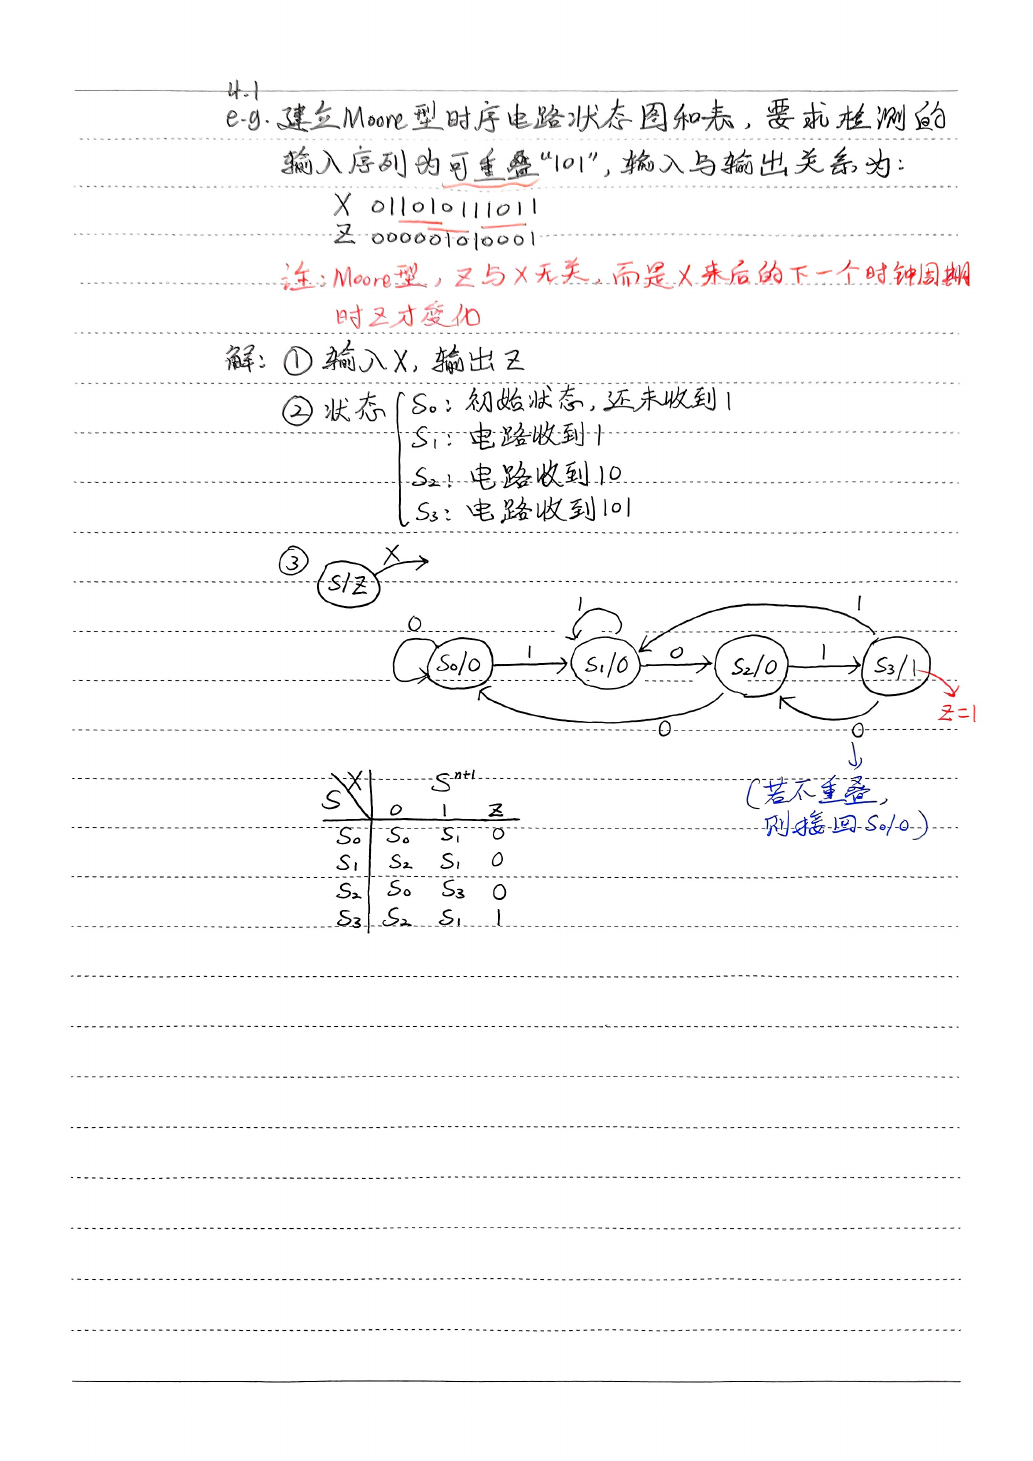 4.1
e.g. 建立Moore型时序电路状态图和表，要求检测的
输入序列为可重叠“101”，输入与输出关系为：
X 011010111011
Z 000001010001
注：Moore型，Z与X无关，而是X来后的下一个时钟周期
时Z才变化
解：① 输入X，输出Z
② 状态 S₀：初始状态，还未收到1
S₁：电路收到1
S₂：电路收到10
S₃：电路收到101
③ S/Z X
0 1 1 0 1 1
S₀/0 S₁/0 S₂/0 S₃/1
Z=1
0 0
(若不重叠，
则接回S₀/0)
S X Sⁿ⁺¹
0 1 Z
S₀ S₀ S₁ 0
S₁ S₂ S₁ 0
S₂ S₀ S₃ 0
S₃ S₂ S₁ 1